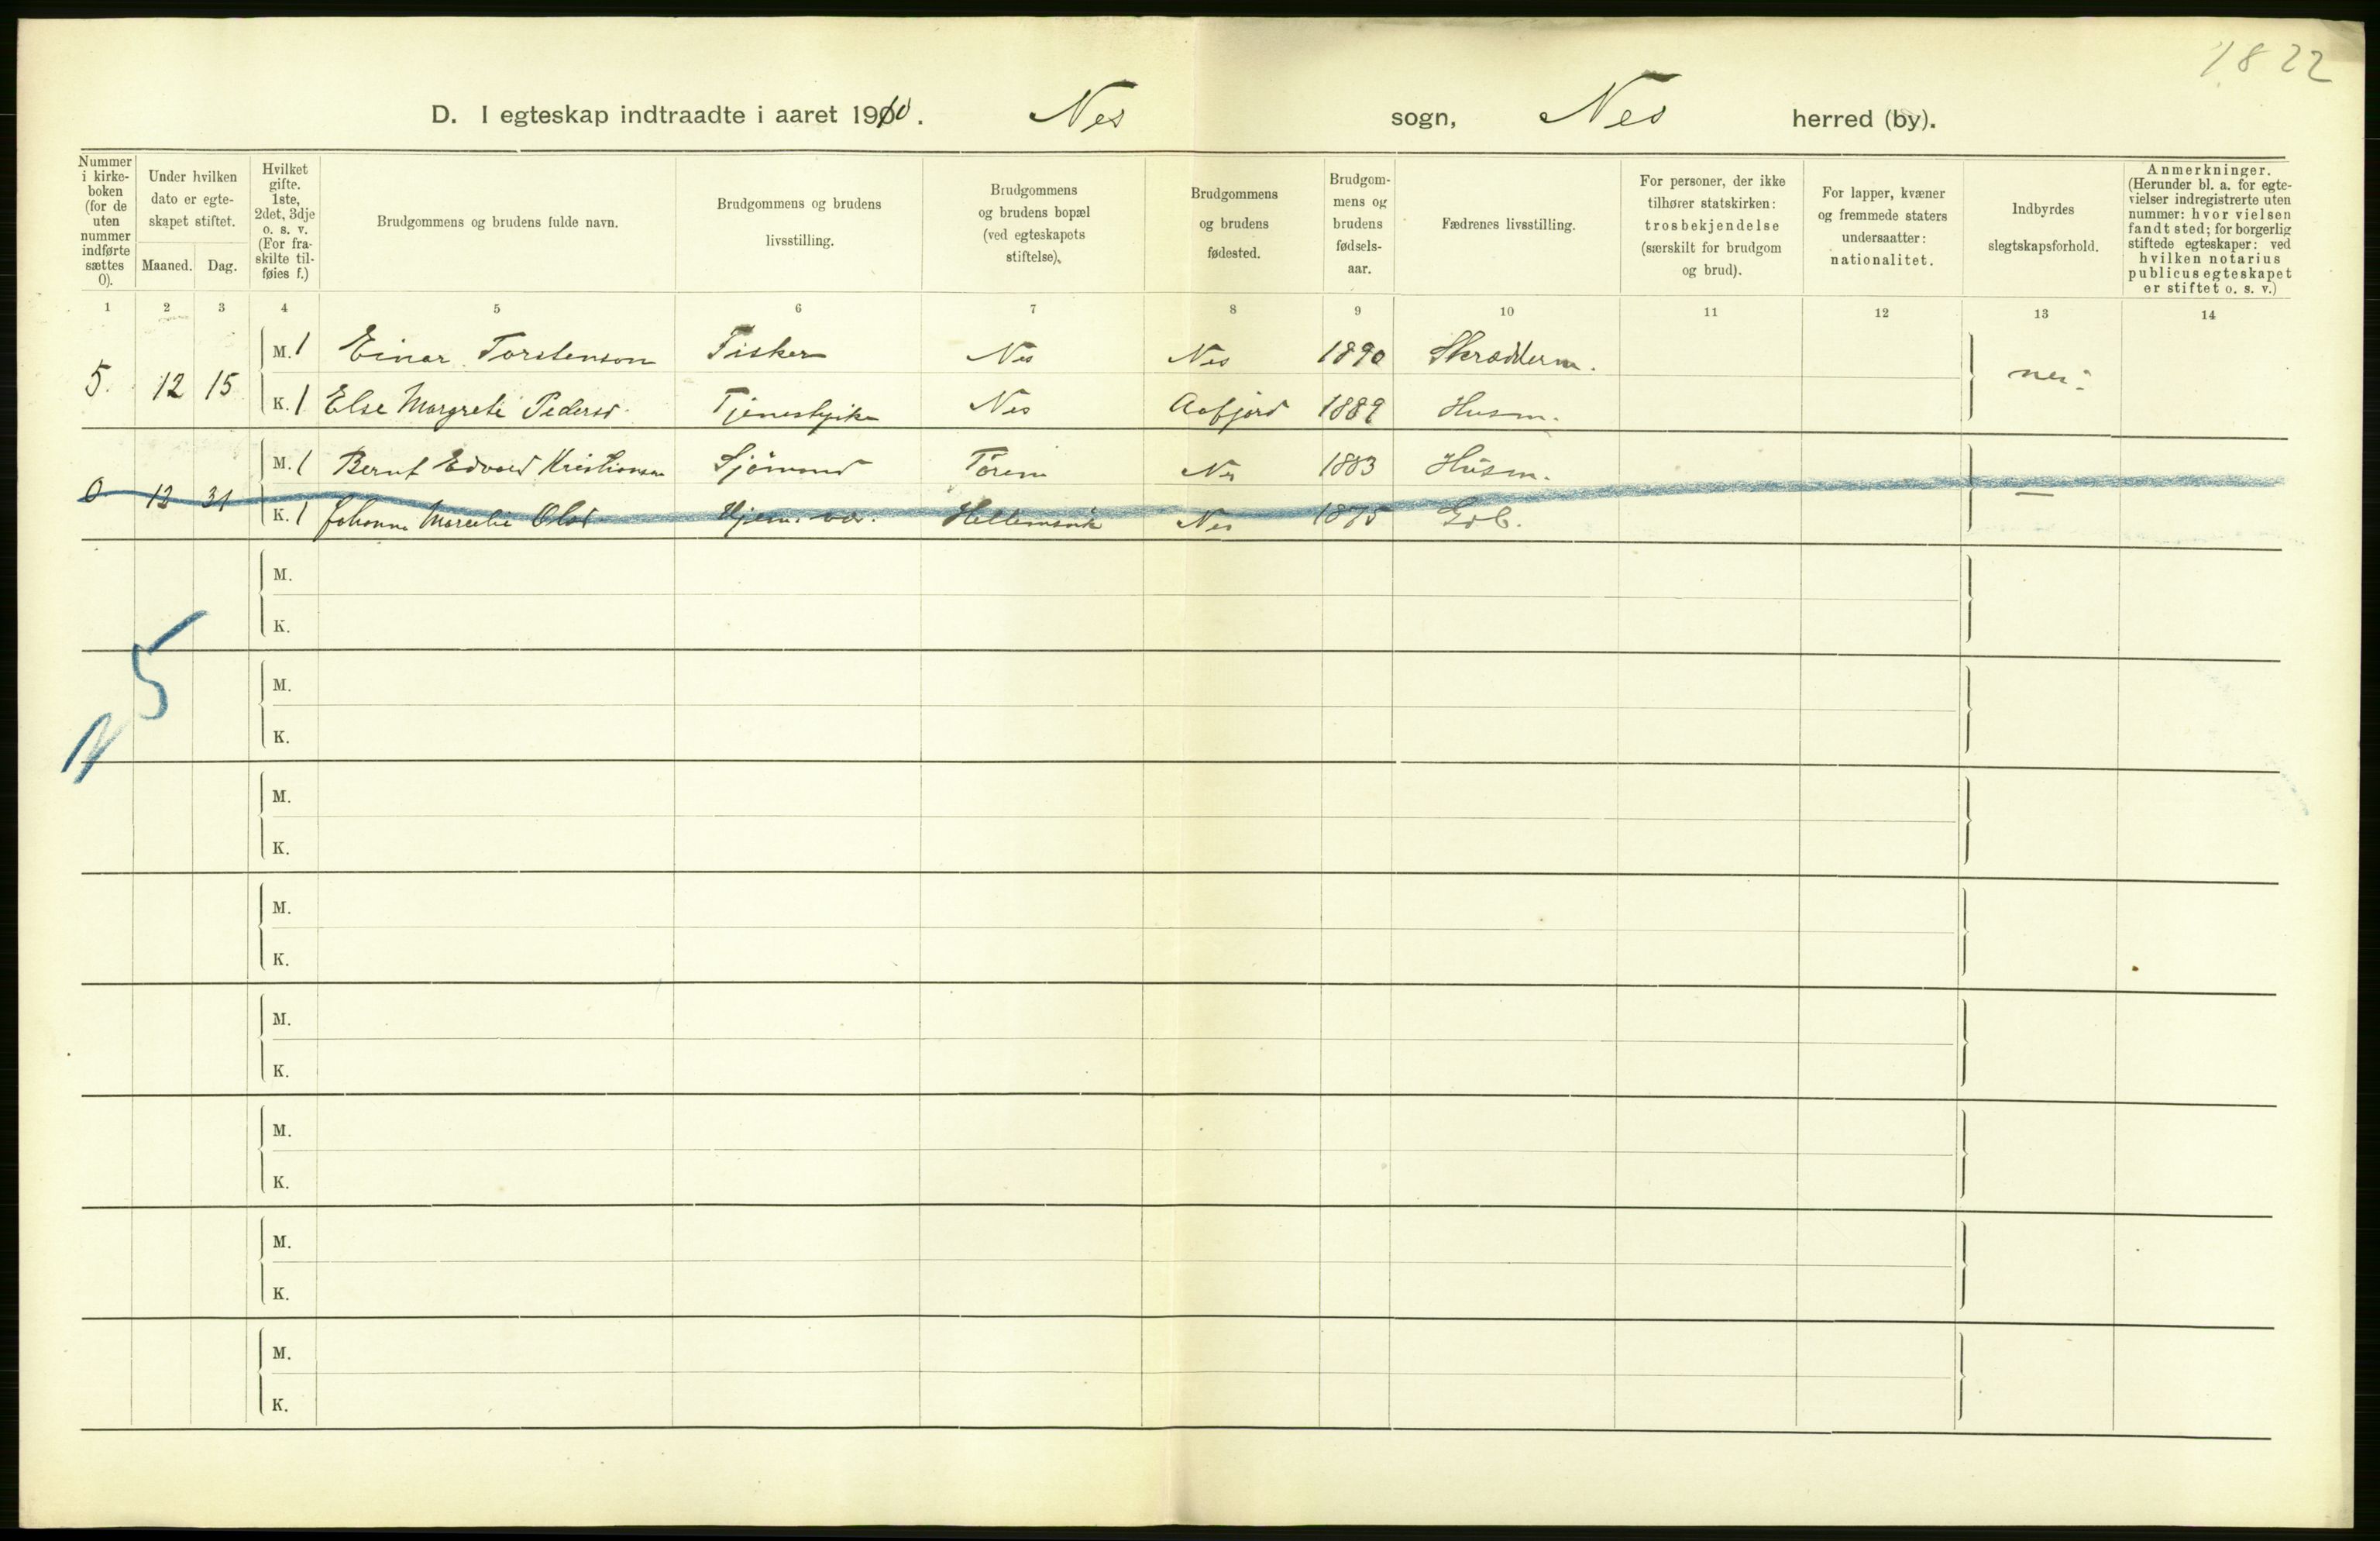 1822
D. I egteskap indtraadte i aaret 1910. Nes sogn, Nes herred (by).
Nummer i kirke-boken (for de uten nummer indførte sættes 0).
Under hvilken dato er egte-skapet stiftet.
Maaned. Dag.
Hvilket gifte. 1ste, 2det, 3dje o. s. v. (For fra-skilte til-føies f.)
Brudgommens og brudens fulde navn.
Brudgommens og brudens livsstilling.
Brudgommens og brudens bopæl (ved egteskapets stiftelse).
Brudgommens og brudens fødested.
Brudgom-mens og brudens fødsels-aar.
Fædrenes livsstilling.
For personer, der ikke tilhører statskirken: trosbekjendelse (særskilt for brudgom og brud).
For lapper, kvæner og fremmede staters undersaatter: nationalitet.
Indbyrdes slegtskapsforhold.
Anmerkninger. (Herunder bl. a. for egte-vielser indregistrerte uten nummer: hvor vielsen fandt sted; for borgerlig stiftede egteskaper: ved hvilken notarius publicus egteskapet er stiftet o. s. v.)
1 2 3 4 5 6 7 8 9 10 11 12 13 14
M. 1 Einar Torstenson Fisker Nes Nes 1890 Skrædderm.
5. 12 15 nei
K. 1 Else Margrete Pedersd. Tjenestpike Nes Aafjord 1889 Husm.
M. 1 Bernt Edvard Kristiansen Sjömand Nes 1883 Husm.
0 12 31 —
K. 1 Johanna Olsd. Nes 1875 Gdb.
M.
K.
5
M.
K.
M.
K.
M.
K.
M.
K.
M.
K.
M.
K.
M.
K.